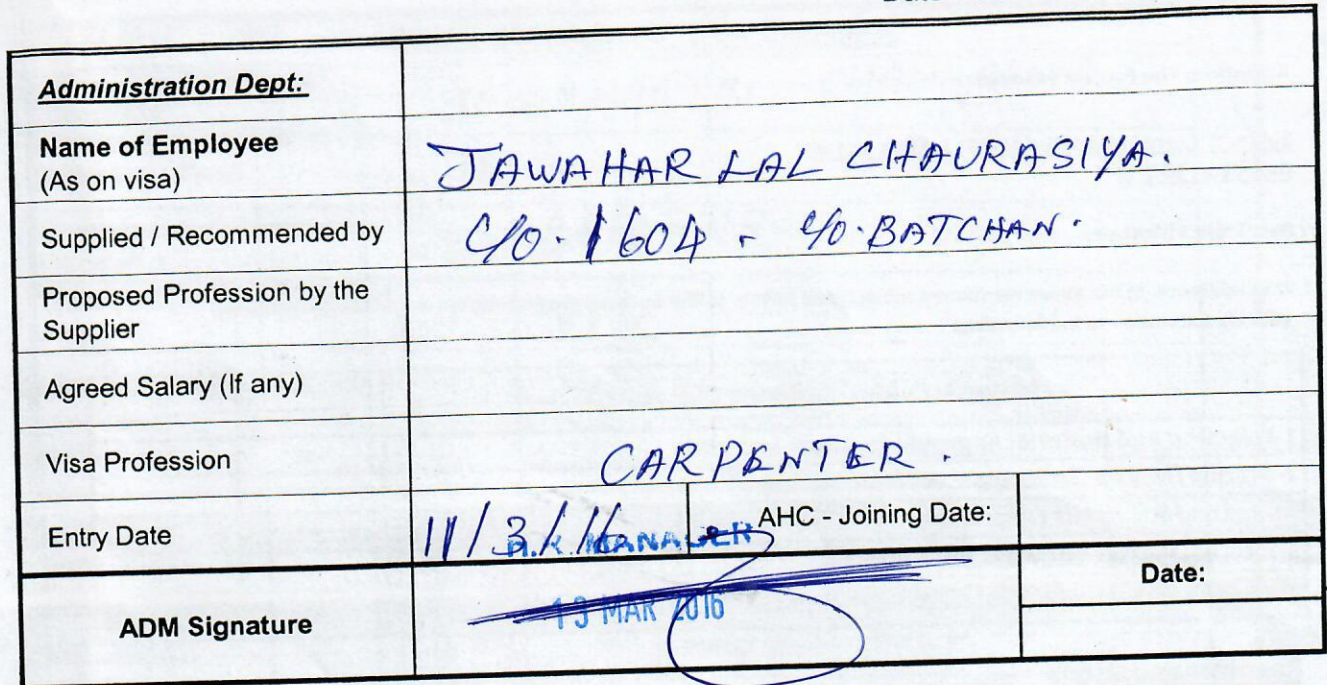 Administration Dept:
Name of Employee
(As on visa)
JAWAHAR LAL CHAURASIYA.
Supplied / Recommended by
C/O. 1604 - C/O. BATCHAN.
Proposed Profession by the
Supplier
Agreed Salary (If any)
Visa Profession
CARPENTER.
Entry Date
11/3/16
H.R. MANAGER
AHC - Joining Date:
ADM Signature
13 MAR 2016
Date: